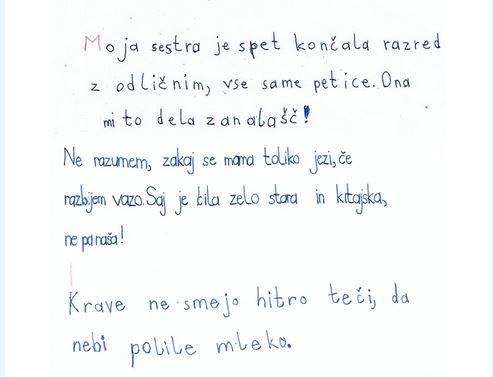 Moja sestra je spet končala razred
z odličnim, vse same petice. Ona
mi to dela zanalašč!
Ne razumem, zakaj se mama toliko jezi, če
razbijem vazo. Saj je bila zelo stara in kitajska,
ne pa naša!
Krave ne smejo hitro teči, da
nebi polile mleko.